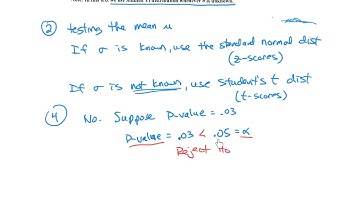 ② testing the mean μ
If σ is known, use the standard normal dist
(z-scores)
If σ is not known, use student's t dist
(t-scores)
④ No. Suppose P-value = .03
P-value = .03 < .05 = α
Reject Ho